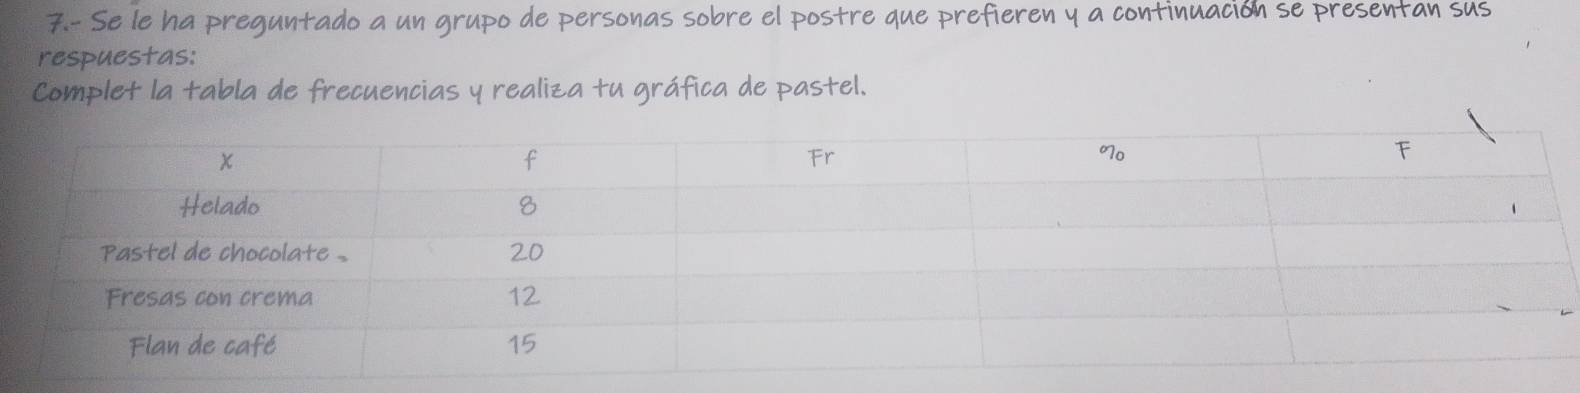 7.- Se le ha preguntado a un grupo de personas sobre el postre que prefieren y a continuación se presentan sus
respuestas:
Complet la tabla de frecuencias y realiza tu gráfica de pastel.
x f Fr % F
Helado 8
Pastel de chocolate. 20
Fresas con crema 12
Flan de café 15